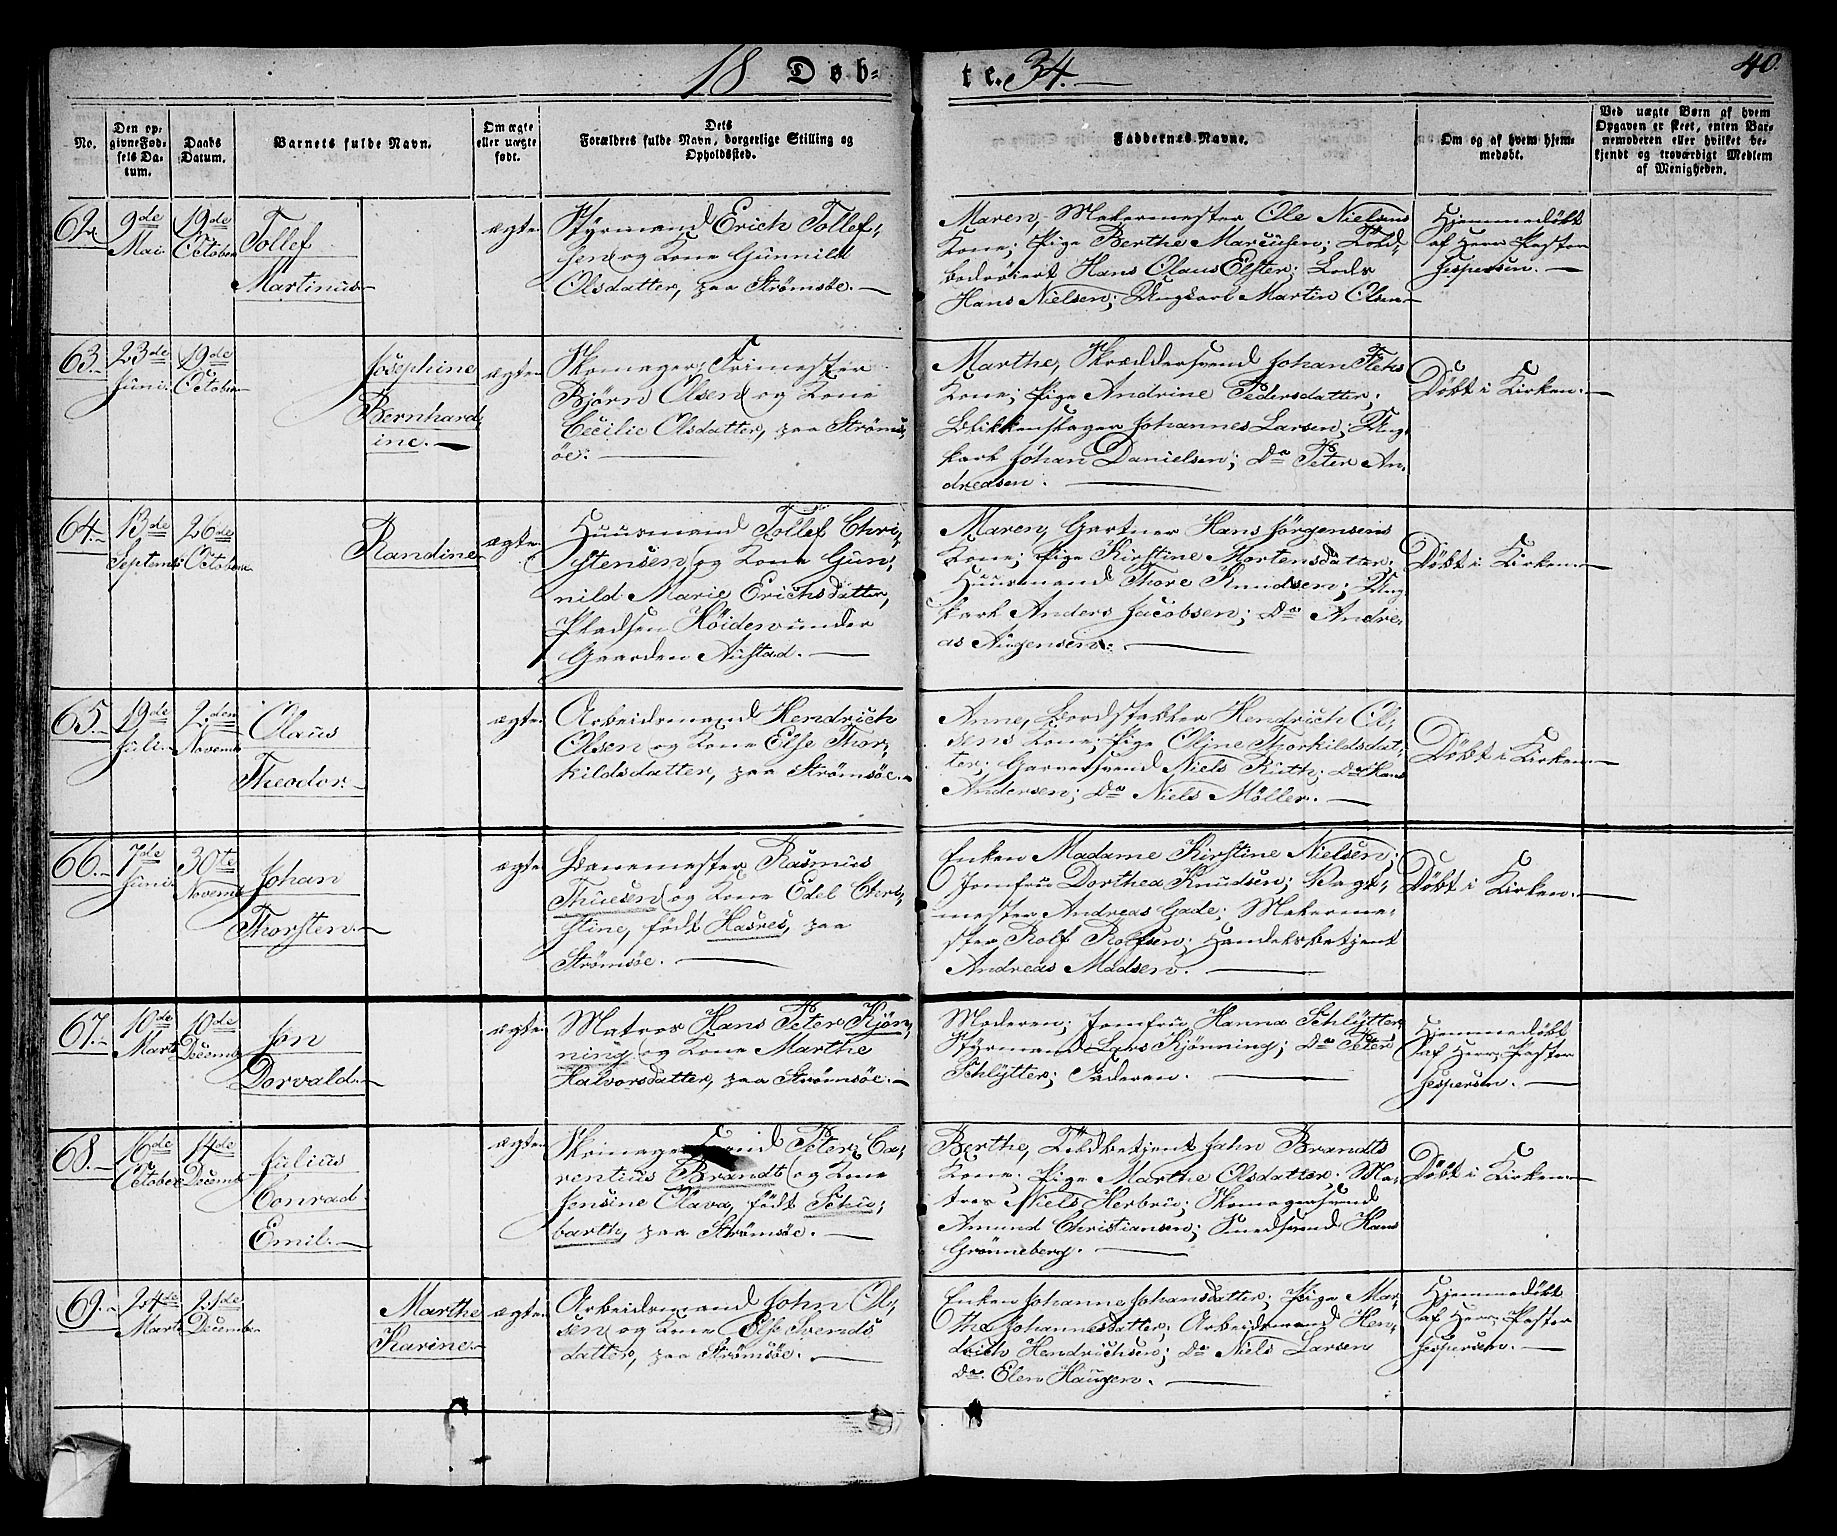 18 Døb-
te. 34.
40.
No.
Den op-
givne Fød-
sels Da-
tum.
Daabs
Datum.
Barnets fulde Navn.
Om ægte
eller uægte
født.
Dets
Forældres fulde Navn, borgerlige Stilling og
Opholdssted.
Faddernes Navne.
Om og af hvem hjem-
medøbt.
Ved uægte Børn af hvem
Opgaven er skeet, enten Bar-
nemoderen eller hvilket be-
kjendt og troværdigt Medlem
af Menigheden.
62.
9de
Mai.
19de
October
Tollef
Martinus
ægte
Styrmand Erich Tollef-
sen og Kone Gunnild
Olsdatter, paa Strömsöe.
Maren, Møkermester Ole Nielsens
Kone; Pige Berthe Marcusen; Told-
betrøiert Hans Claus Elster; Lods
Hans Nielsen; Ungkarl Martin Olsen
Hjemmedöbt
af Herr Pastor
Jespersen.
63.
23de
Juni.
19de
October
Josephine
Bernhard-
ine.
ægte
Skomager, Frimester
Björn Olsen og Kone
Cecilie Olsdatter, paa Ströms-
öe.
Marthe, Skræddersvend Johan Flehs
Kone; Pige Andrine Pedersdatter;
Blikkenslager Johannes Larsen; Ung-
karl Johan Danielsen; Do Peter An-
dreasen.
Döbt i Kirken.
64.
13de
Septemb.
26de
October
Randine
ægte
Huusmand Tollef Chri-
stensen og Kone Gun-
nild Marie Erichsdatter,
Pladsen Höiden under
Gaarden Austad.
Maren, Gartner Hans Jörgensens
Kone; Pige Kirstine Mortensdatter;
Huusmand Thore Knudsen; Ung-
karl Anders Jacobsen; Do Andre-
as Augensen.
Döbt i Kirken.
65.
19de
Juli.
2den
Novemb.
Olaus
Theodor.
ægte
Arbeidsmand Hendrich
Olsen og Kone Else Thor-
kildsdatter, paa Strömsöe.
Anne, Bordstabler Hendrich Ol-
sens Kone; Pige Oline Thorkildsdat-
ter; Garversvend Niels Ruth; Do Hans
Andersen; Do Niels Möller.
Döbt i Kirken.
66.
7de
Juni.
30te
Novemb.
Johan
Thorsten.
ægte
Banemester Rasmus
Thuesen og Kone Edel Chri-
stine, födt Hasres, paa
Strömsöe.
Enken Madame Kirstine Nielsen;
Jomfru Dorthea Knudsen; Vagt-
mester Andreas Gade; Møkerme-
ster Rolf Rolfsen; Handelsbetjent
Andreas Madsen.
Döbt i Kirken.
67.
10de
Marts
10de
Decemb.
Jon
Dorvald.
ægte
Matros Hans Peter Kjön-
ning og Kone Marthe
Halvorsdatter, paa Strömsöe.
Moderen; Jomfru Hanna Schlytter;
Styrmand Lars Kjönning; Do Peter
Schlytter; Faderen.
Hjemmedöbt
af Herr Pastor
Jespersen.
68.
16de
October
14de
Decemb.
Julius
Conrad
Emil.
ægte
Skomagersvend Peter Ca-
rentius Brandt og Kone
Jensine Olava, födt Schu-
barth, paa Strömsöe.
Berthe, Toldbetjent Jahn Brandts
Kone; Pige Marthe Olsdatter; Ma-
tros Niels Herbru; Skomagersvend
Amund Christiansen; Smedsvend Hans
Grönneberg.
Döbt i Kirken
69.
24de
Marts
21de
Decemb.
Marthe
Karine.
ægte
Arbeidsmand John Ol-
sen og Kone Else Svends-
datter, paa Strömsöe.
Enken Johanne Johansdatter; Pige Mar-
the Johannesdatter; Arbeidsmand Hen-
drich Hendrichsen; Do Niels Larsen
Do Elen Haugen.
Hjemmedöbt
af Herr Pastor
Jespersen.